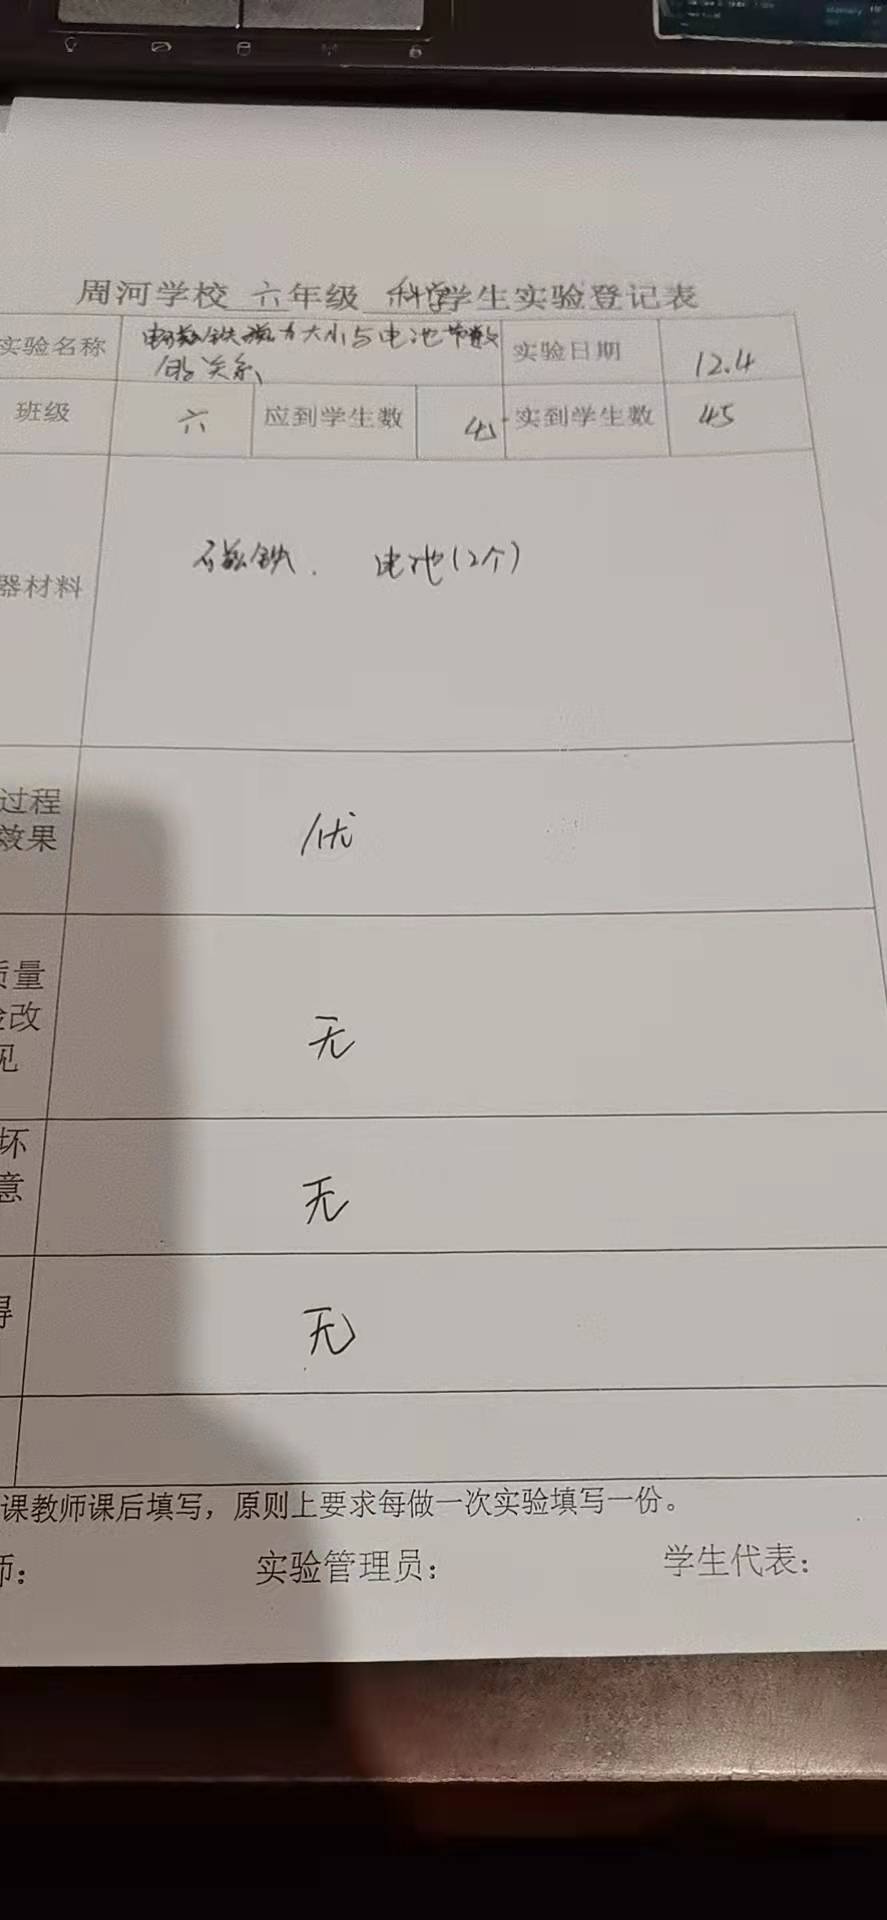 周河学校 六年级 科学学生实验登记表
实验名称 电磁铁磁力大小与电池节数的关系 实验日期 12.4
班级 六 应到学生数 45 实到学生数 45
器材料 磁铁. 电池(2个)
过程
效果 优
质量
改
见 无
坏
意 无
得 无
课教师课后填写，原则上要求每做一次实验填写一份。
师： 实验管理员： 学生代表：